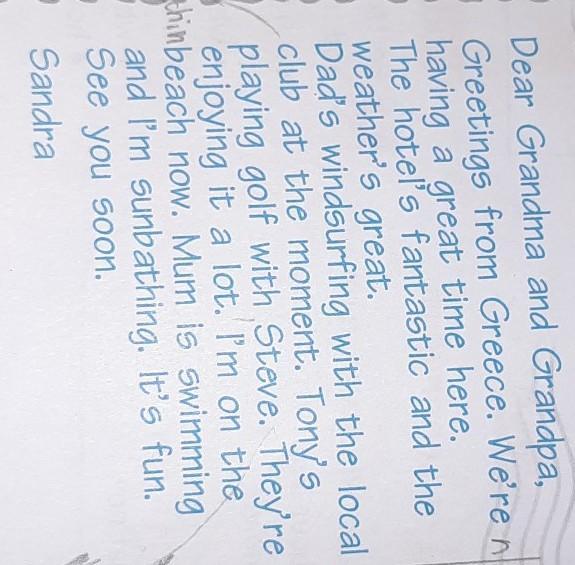 Dear Grandma and Grandpa,
Greetings from Greece. We're n
having a great time here.
The hotel's fantastic and the
weather's great.
Dad's windsurfing with the local
club at the moment. Tony's
playing golf with Steve. They're
enjoying it a lot. I'm on the
thin beach now. Mum is swimming
and I'm sunbathing. It's fun.
See you soon.
Sandra